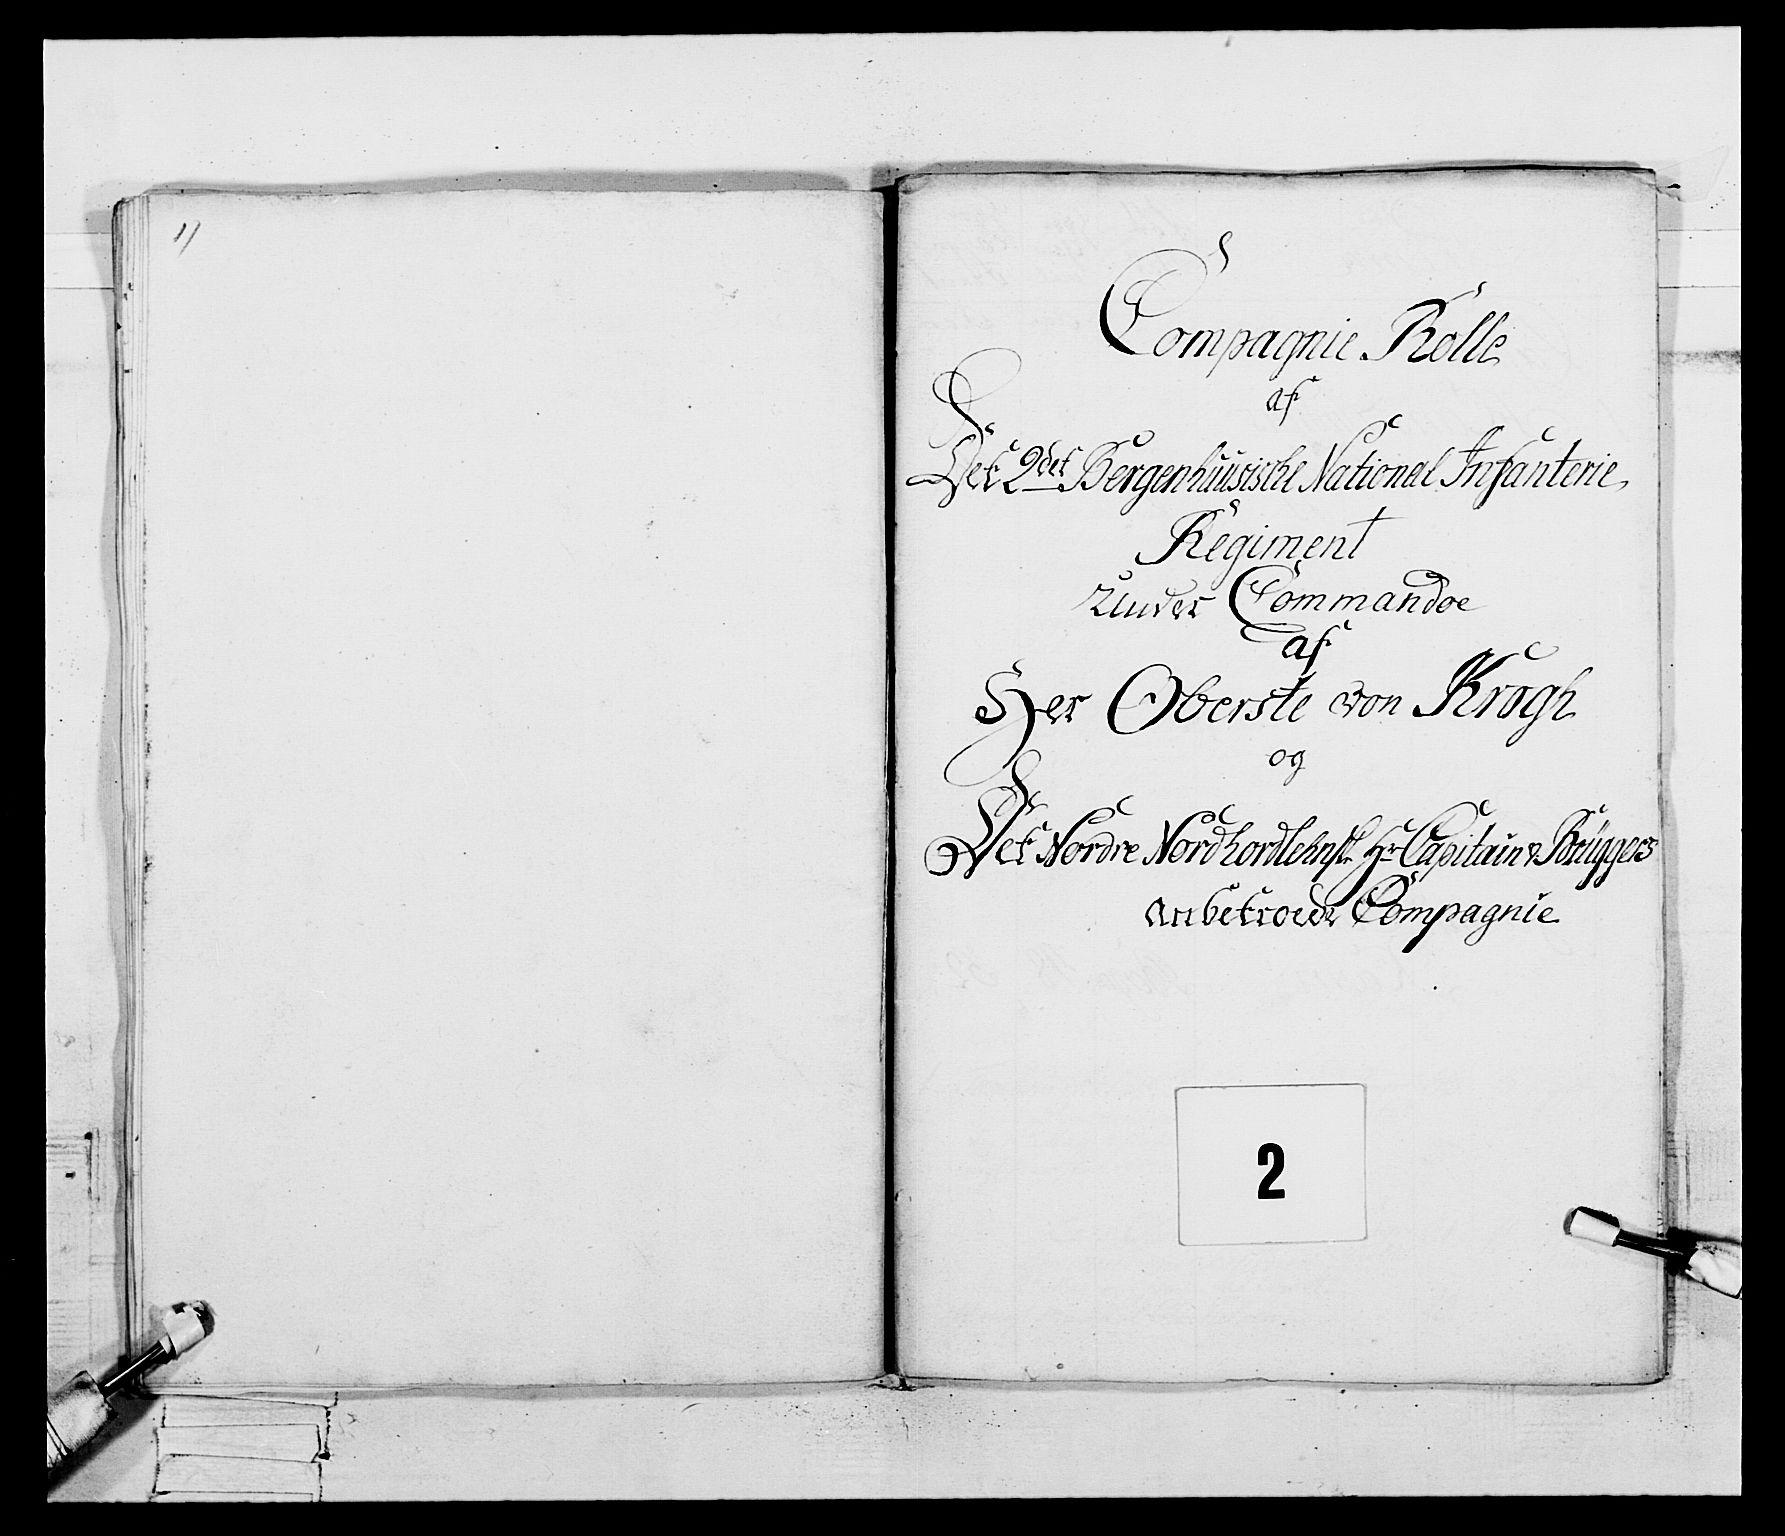 11
Compagnie Rolle
af
Det 2det Bergenhuusische National Infanterie
Regiment
Under Commandoe
af
Her Oberste von Krogh
og
Det Nordre Nordhordlehnsk. Hr. Capitain v. Brüggers
anbetroede Compagnie
2